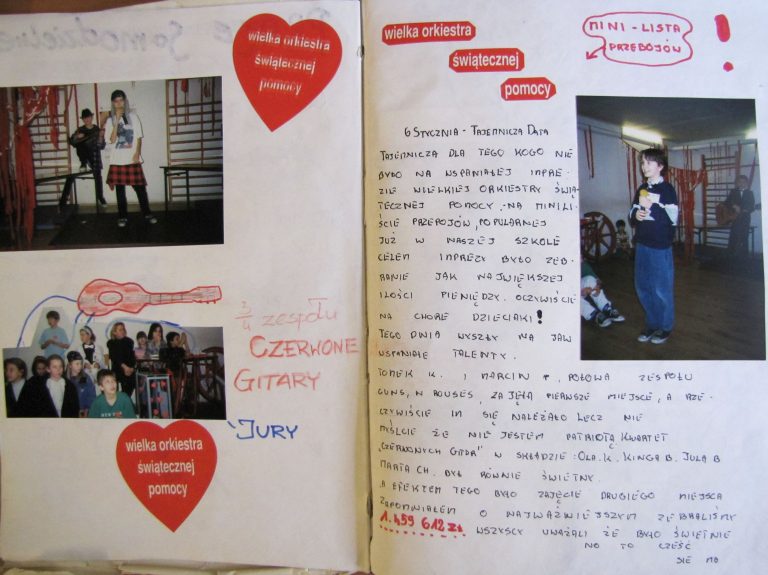 wielka orkiestra
świątecznej
pomocy
3/4 zespołu
CZERWONE
GITARY
JURY
wielka orkiestra
świątecznej
pomocy
wielka orkiestra
świątecznej
pomocy
MINI - LISTA
PRZEBOJÓW
!
6 STYCZNIA - TAJEMNICZA DATA
TAJEMNICZA DLA TEGO KOGO NIE
BYŁO NA WSPANIAŁEJ IMPRE-
ZIE WIELKIEJ ORKIESTRY ŚWIĄ-
TECZNEJ POMOCY, NA MINILI-
ŚCIE PRZEPOJÓW, POPULARNEJ
JUŻ W NASZEJ SZKOLE
CELEM IMPREZY BYŁO ZEB-
RANIE JAK NAJWIĘKSZEJ
ILOŚCI PIENIĘDZY. OCZYWIŚCIE
NA CHORE DZIECIAKI!
TEGO DNIA WYSZŁY NA JAW
WSPANIAŁE TALENTY.
TOMEK K. I MARCIN P, POŁOWA ZESPOŁU
GUNS, N ROUSES, ZAJĘŁA PIERWSZE MIEJSCE, A RZE-
CZYWIŚCIE IM SIĘ NALEŻAŁO LECZ NIE
MYŚLCIE ŻE NIE JESTEM PATRIOTĄ. KWARTET
„CZERWONYCH GITAR" W SKŁADZIE: OLA. K. KINGA B. JULA B
MARTA CH. BYŁ RÓWNIE ŚWIETNY.
A EFEKTEM TEGO BYŁO ZAJĘCIE DRUGIEGO MIEJSCA
ZAPOMNIAŁEM O NAJWAŻNIEJSZYM ZEBRALIŚMY
1.459 612 zł WSZYSCY UWAŻALI ŻE BYŁO ŚWIETNIE
NO TO CZEŚĆ
SIE MA